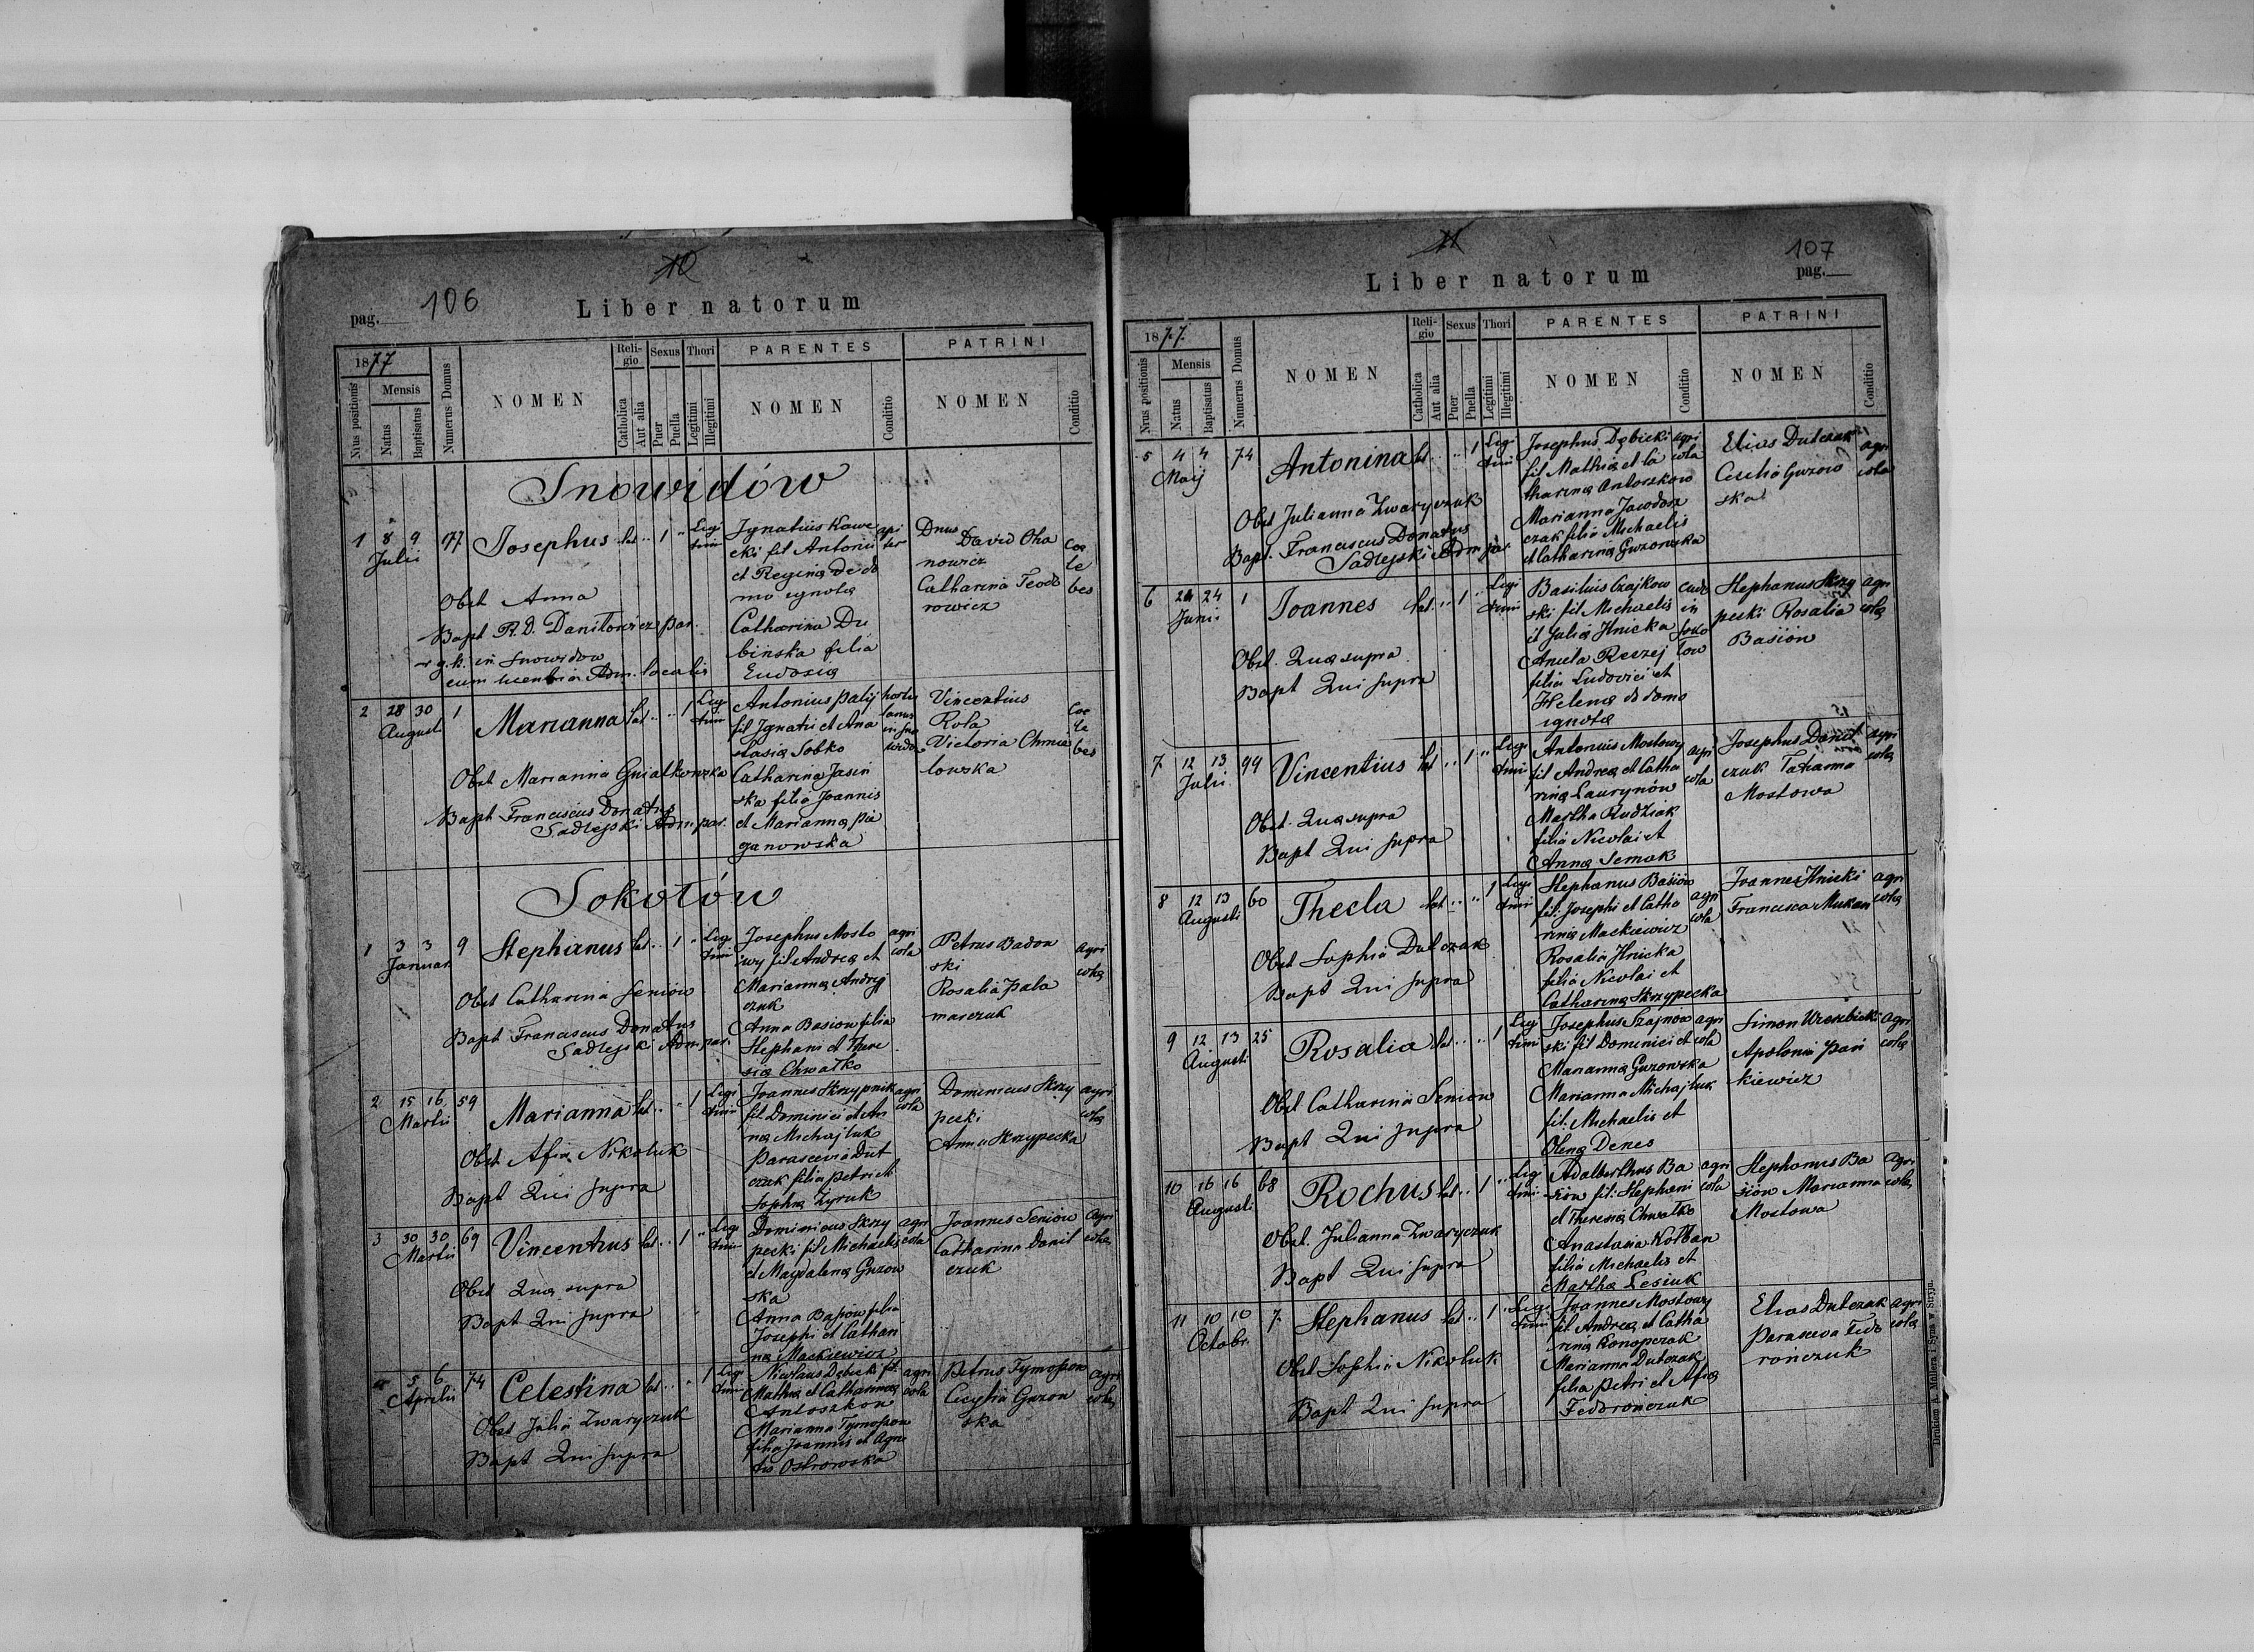 10
106
pag.
Liber natorum
1877
Nrus positionis
Mensis
Natus
Baptisatus
Numerus Domus
NOMEN
Reli-
gio
Catholica
Aut alia
Sexus
Puer
Puella
Thori
Legitimi
Illegitimi
PARENTES
NOMEN
Conditio
PATRINI
NOMEN
Conditio
Snowidów
1 8 9 177 Josephus lat. " 1 " Legi
timi
Julii
Obst Anna
Bapt R. D. Danilowicz par.
r. g. k. in Snowidow
cum licentia Adm. localis
Ignatius Kawe
cki fil Antonii
et Regina de do
mo ignota
Catharina Du
binska filia
Eudosia
Dnus
David Oha
nowicz
Catharina Teodo
rowicz
Coe
le
bes
2 28 30 1 Marianna lat. " " 1 Leg
timi
Augusti
Obst Marianna Gniatkowska
Bapt Franciscus Donatus
Sadlejski Adm. par.
Antonius Palij
fil Ignatii et Ana
stasia Sobko
Catharina Jasin
ska filia Joannis
et Marianna Pia
ganowska
hortu
lanus
in Sno
widow
Vincentius
Rola
Victoria Chmie
lowska
Coe
le
bes
Sokołów
1 3 3 9 Stephanus lat. " 1 " Leg
timi
Januar.
Obst Catharina Seniow
Bapt Franciscus Donatus
Sadlejski Adm. par.
Josephus Mosto
wy fil Andrea et
Marianna Andrej
czuk
Anna Basiow filia
Stephani et There
sia Chwałko
agri
cola
Petrus Badow
ski
Rosalia Pala
marczuk
agri
cola
2 15 16 59 Marianna lat. " " 1 Legi
timi
Martii
Obst Afia Nikoluk
Bapt Qui supra
Joannes Skrzypnik
fil Dominici et An
na Michajluk
Parascevia Dut
czak filia Petri et
Sophia Zyruk
agri
cola
Dominicus Skrzy
pecki
Anna Skrzypecka
agri
cola
3 30 30 69 Vincentius lat. " 1 " Legi
timi
Martii
Obst Qua supra
Bapt Qui supra
Dominicus Skrzy
pecki fil Michaelis
et Magdalena Guzow
ska
Anna Basiow filia
Josephi et Cathari
na Mackiewicz
agri
cola
Joannes Seniow
Catharina Danil
czuk
Agri
cola
5 6 74 Celestina lat. " " 1 Legi
timi
Aprilis
Obst Julia Zwaryczuk
Bapt Qui supra
Nicolaus Dębicki fil.
Mathia et Catharina
Antoszkow
Marianna Tymoszow
filia Joannis et Agne
tis Ostrowska
agri
cola
Petrus Tymoszow
Cecylia Guzow
ska
agri
cola
11
107
pag.
Liber natorum
1877.
Nrus positionis
Mensis
Natus
Baptisatus
Numerus Domus
NOMEN
Reli-
gio
Catholica
Aut alia
Sexus
Puer
Puella
Thori
Legitimi
Illegitimi
PARENTES
NOMEN
Conditio
PATRINI
NOMEN
Conditio
5 4 4 74 Antonina lat. " " 1 Legi
timi
Maij
Obst Julianna Zwaryczuk
Bapt. Franciscus Donatus
Sadlejski Adm par.
Josephus Dębicki
fil Mathia et Ca
tharina Antoszkow
Marianna Jawdosz
czak filia Michaelis
et Catharina Guzowska
agri
cola
Elias Dutczak
Cecilia Guzow
ska
agri
cola
6 24 24 1 Joannes lat. " 1 " Legi
timi
Junii
Obst. Qua supra
Bapt Qui supra
Basilius Czajkow
ski fil Michaelis
et Julia Hnicka
Aniela Reczej
filia Ludovici et
Helena de domo
ignota
in
Soko
low
Stephanus Skrzy
pecki Rosalia
Basiow
agri
cola
7 12 13 99 Vincentius lat. " 1 " Legi
timi
Julii
Obst. Qua supra
Bapt Qui supra
Antonius Mostowy
fil Andrea et Catha
rina Laurynów
Martha Rudziak
filia Nicolai et
Anna Semak
agri
cola
Josephus Danil
czuk Tatianna
Mostowa
agri
cola
8 12 13 60 Thecla lat. " " 1 Legi
timi
Augusti
Obst Sophia Dutczak
Bapt Qui supra
Stephanus Basiow
fil. Josephi et Catha
rina Mackiewicz
Rosalia Hnicka
filia Nicolai et
Catharina Skrzypecka
agri
cola
Joannes Hnicki
Francisca Mukan
agri
cola
9 12 13 25 Rosalia lat. " " 1 Leg
timi
Augusti
Obst Catharina Seniow
Bapt Qui supra
Josephus Szajnow
ski fil Dominici et
Marianna Guzowska
Marianna Michajluk
fil: Michaelis et
Olena Denes
agri
cola
Simon Wierzbicki
Apolonia Pan
kiewicz
agri
cola
10 16 16 68 Rochus lat. " 1 " Leg
timi
Augusti
Obst. Julianna Zwaryczuk
Bapt Qui supra
Adalberthus Ba
siow fil: Stephani
et Theresia Chwałko
Anastasia Kołban
filia Michaelis et
Martha Lesiuk
agri
cola
Stephanus Ba
siow Marianna
Mostowa
agri
cola
11 10 10 7. Stephanus lat. " 1 " Legi
timi
Octobr.
Obst Sophia Nikoluk
Bapt Qui supra
Joannes Mostowy
fil Andrea et Catha
rina Konopczak
Marianna Dutczak
filia Petri et Afia
Fedorończuk
Elias Dutczak
Parasceva Fedo
rończuk
agri
cola
Drukiem A. Müllera i Syna w Stryju.